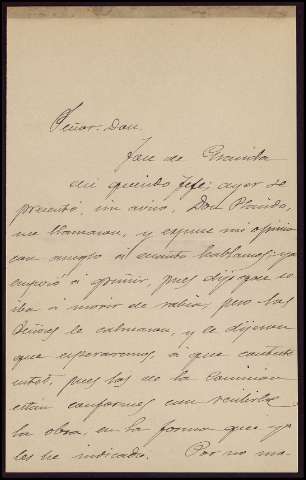 Señor Don
José de Granita
mi querido Jefe; ayer se
presentó, sin aviso, Don Placido,
me llamaron, y expuse mi opinion
con arreglo á cuanto hablamos; ya
empezó á gruñir, pues dijo que se
iba á morir de rabia; pero los
Señores le calmaron, y le dijeron
que esperaremos, á que conteste
usted, pues los de la Comision
estan conformes con recibirle
la obra, en la forma que ya
les he indicado. Por no mo-